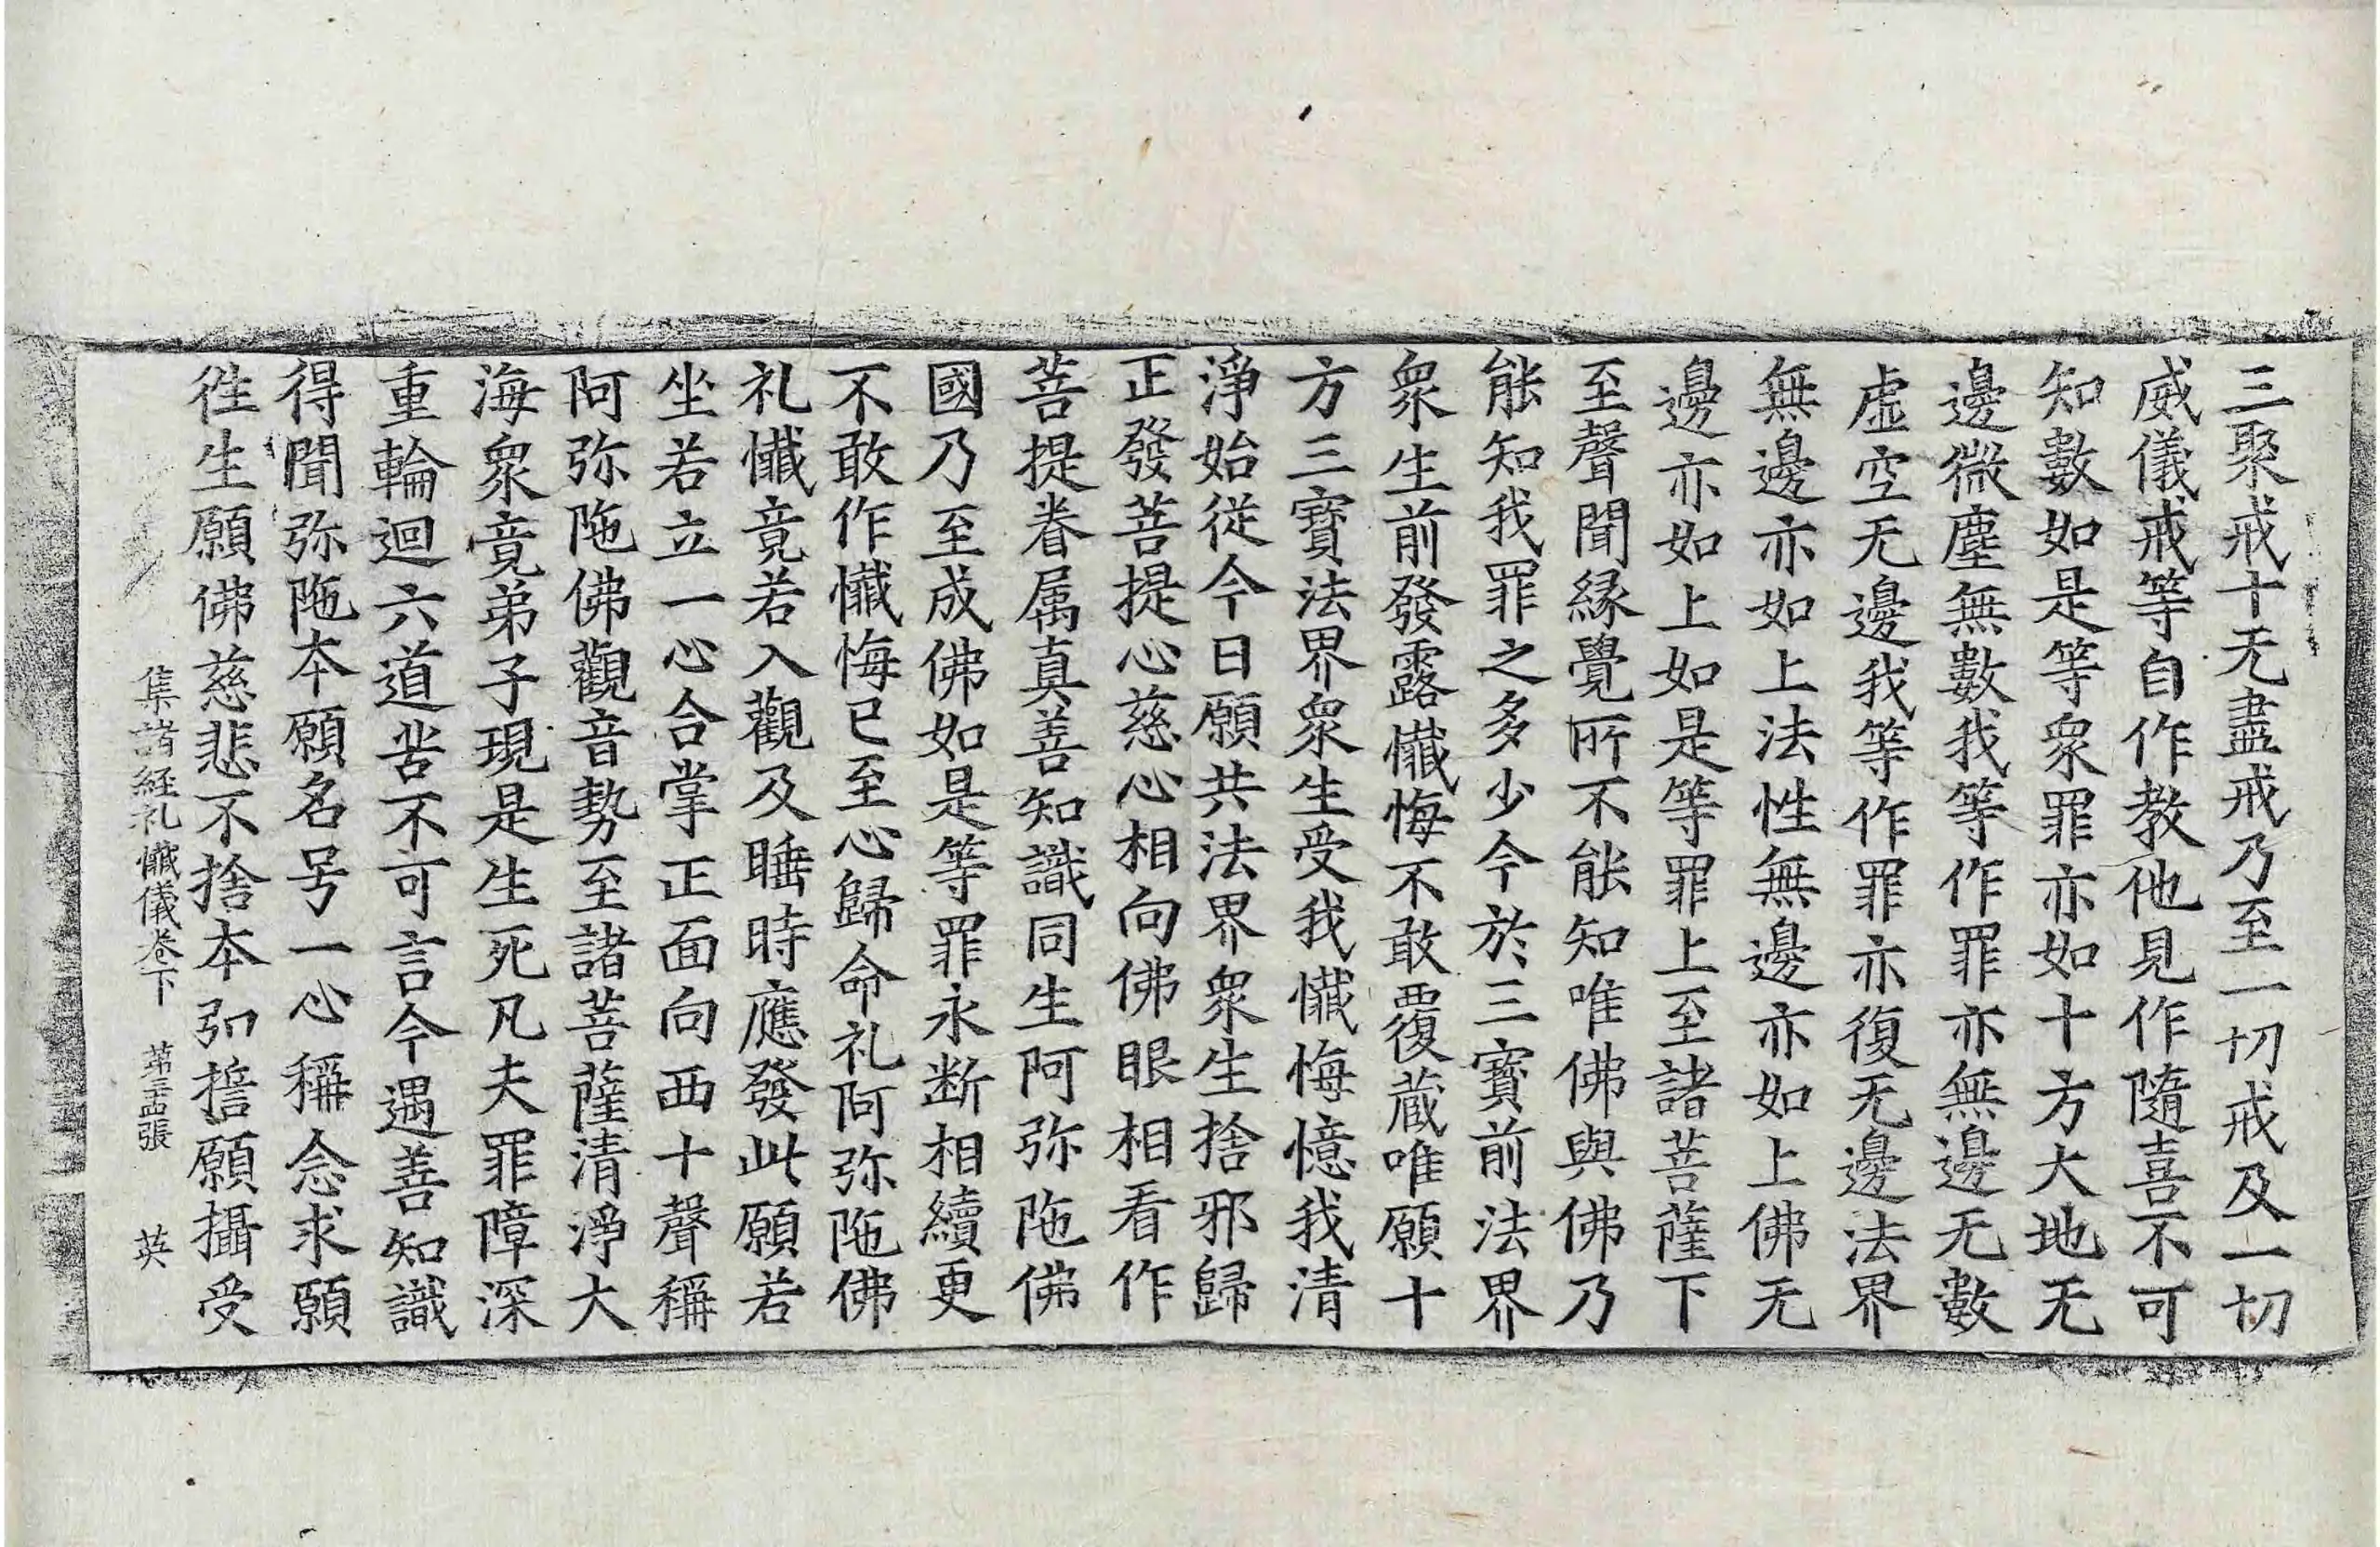 三聚戒十无盡戒乃至一切戒及一切
威儀戒等自作教他見作隨喜不可
知數如是等衆罪亦如十方大地无
邊微塵無數我等作罪亦無邊无數
虛空无邊我等作罪亦復无邊法界
無邊亦如上法性無邊亦如上佛无
邊亦如上如是等罪上至諸菩薩下
至聲聞緣覺所不能知唯佛與佛乃
能知我罪之多少今於三寶前法界
衆生前發露懺悔不敢覆蔵唯願十
方三寶法界衆生受我懺悔憶我清
淨始從今日願共法界衆生捨邪歸
正發菩提心慈心相向佛眼相看作
菩提眷属真善知識同生阿弥陁佛
國乃至成佛如是等罪永断相續更
不敢作懺悔已至心歸命礼阿弥陁佛
礼懺竟若入觀及睡時應發此願若
坐若立一心合掌正面向西十聲稱
阿弥陁佛觀音勢至諸菩薩清淨大
海衆竟弟子現是生死凡夫罪障深
重輪迴六道苦不可言今遇善知識
得聞弥陁本願名号一心稱念求願
徃生願佛慈悲不捨本弘誓願攝受
集諸經礼懺儀卷下 第三十四張 英